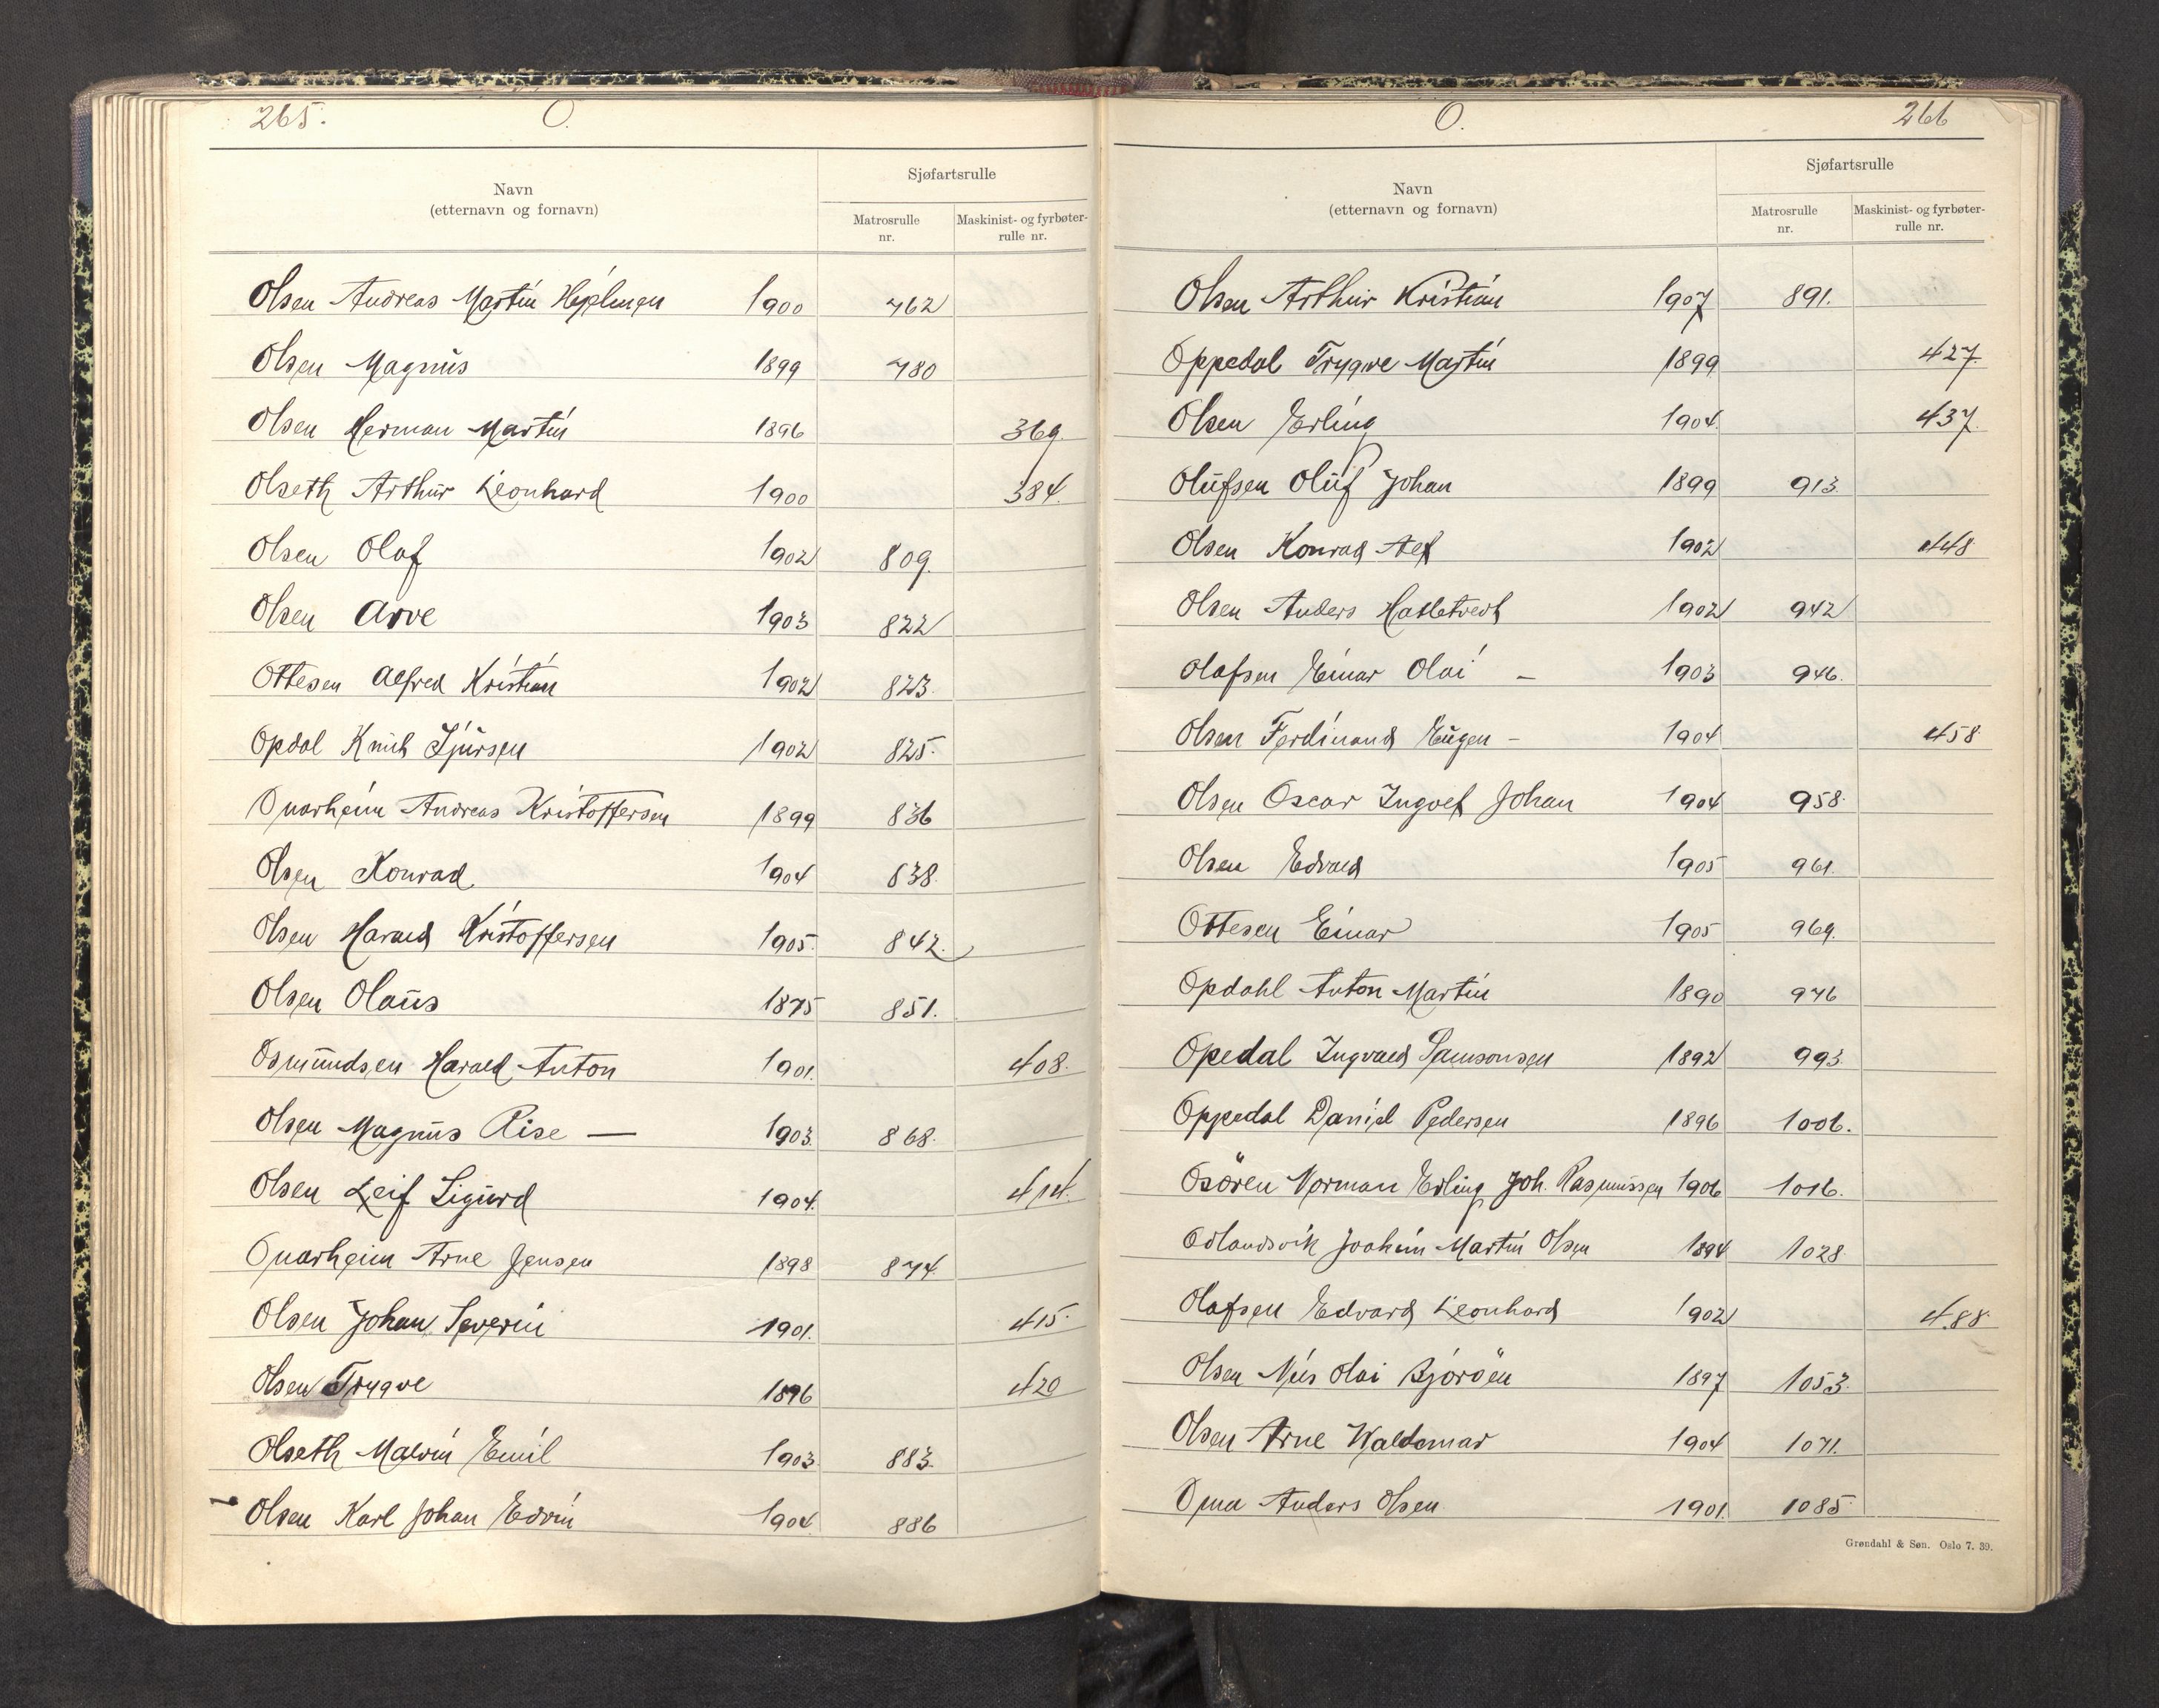 265. O.
Navn
(etternavn og fornavn)
Sjøfartsrulle
Matrosrulle nr.
Maskinist- og fyrbøter-rulle nr.
Olsen Andreas Martin Hjelmen 1900 762
Olsen Magnus 1899 780
Olsen Herman Martin 1896 369.
Olseth Arthur Leonhard 1900 384.
Olsen Olaf 1902 809.
Olsen Arve 1903 822
Ottesen Alfred Kristian 1902 823.
Opdal Knut Sjursen 1902 825.
Onarheim Andreas Kristoffersen 1899 836
Olsen Konrad 1904 838.
Olsen Harald Kristoffersen 1905. 842.
Olsen Olaus 1875 851.
Osmundsen Harald Anton 1901. 408.
Olsen Magnus Rise — 1903. 868.
Olsen Leif Sigurd 1904. 414.
Onarheim Arne Jensen 1898 874.
Olsen Johan Severin 1901. 415.
Olsen Trygve 1896 420
Olseth Malvin Emil 1903 883.
Olsen Karl Johan Edvin 1904. 886
O. 266
Navn
(etternavn og fornavn)
Sjøfartsrulle
Matrosrulle nr.
Maskinist- og fyrbøter-rulle nr.
Olsen Arthur Kristian 1907 891.
Oppedal Trygve Martin 1899 427.
Olsen Erling 1904. 437.
Olufsen Oluf Johan 1899 913.
Olsen Konrad Alf 1902 448.
Olsen Anders Hatletvedt 1902 942
Olafsen Einar Olai – 1903 946.
Olsen Ferdinand Eugen – 1904 458
Olsen Oscar Ingolf Johan 1904 958.
Olsen Edvald 1905 961.
Ottesen Einar 1905 969.
Opdahl Anton Martin 1890 976
Opedal Ingvald Samsonsen 1892 993.
Oppedal Daniel Pedersen 1896 1006.
Osören Norman Erling Joh. Rasmussen 1906 1016.
Odlandsvik Joakim Martin Olsen 1894 1028
Olafsen Edvard Leonhard 1902 488.
Olsen Nils Olai Björöen 1897 1053.
Olsen Arne Waldemar 1904 1071.
Oma Anders Olsen 1901. 1085
Grøndahl & Søn. Oslo 7. 39.